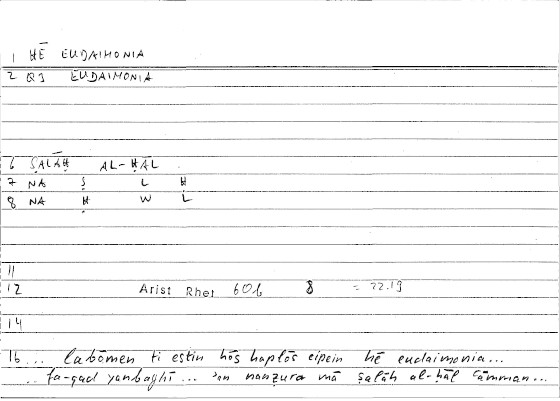 1 HĒ EUDAIMONIA
2 Q3 EUDAIMONIA
6 ṢALĀḤ AL-ḤĀL
7 NA Ṣ L Ḥ
8 NA Ḥ W L
11
12 Arist Rhet 60b 8 = 22.19
14
16 ... labōmen ti estin hōs haplōs eipein hē eudaimonia...
.. fa-qad yanbaghī ... ʾan nanẓura mā ṣalāḥ al-ḥāl ʿāmman...